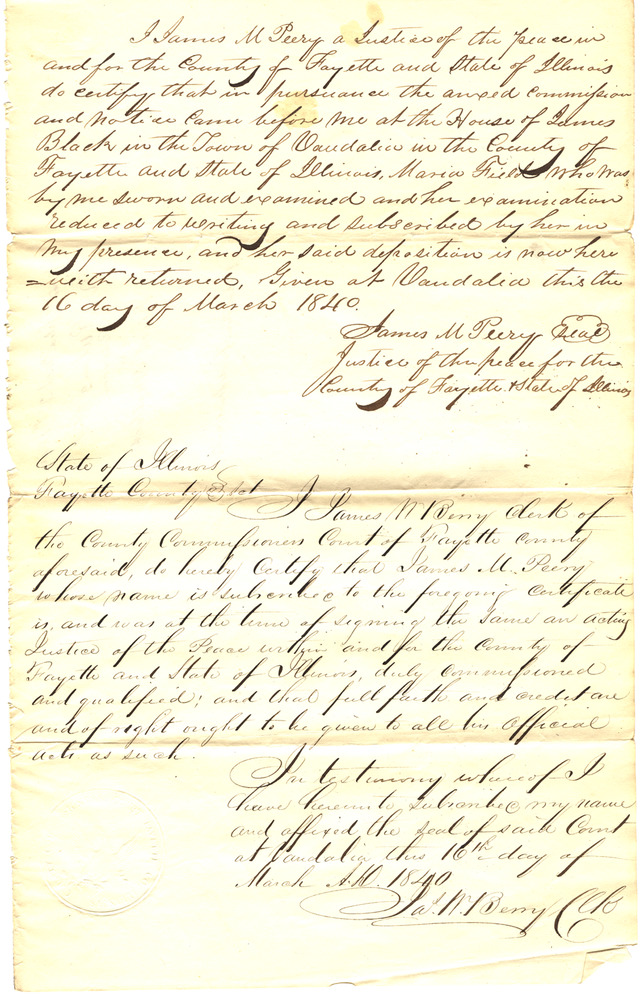 I James M Peery a Justice of the peace in
and for the County of Fayette and State of Illinois
do certify that in pursuance the anxed commission
and notice came before me at the House of James
Black in the Town of Vandalia in the County of
Fayette and State of Illinois, Maria Field who was
by me sworn and examined and her examination
reduced to writing and subscribed by her in
my presence, and her said deposition is now here
=with returned, Given at Vandalia this the
16 day of March 1840.
James M Peery Seal
Justice of the peace for the
County of Fayette & State of Illinois
State of Illinois
Fayette County Sct I James W Berry Clerk of
the County Commissioners Court of Fayette county
aforesaid, do hereby Certify that James M. Peery
whose name is subscribed to the foregoing certificate
is, and was at the time of signing the same an acting
Justice of the Peace within and for the County of
Fayette and State of Illinois, duly commissioned
and qualified; and that full faith and credit are
and of right ought to be given to all his official
acts as such.
In testimony whereof I
have hereunto subscribed my name
and affixed the seal of said Court
at Vandalia this 16th day of
March A.D. 1840
Jas. W. Berry Clk